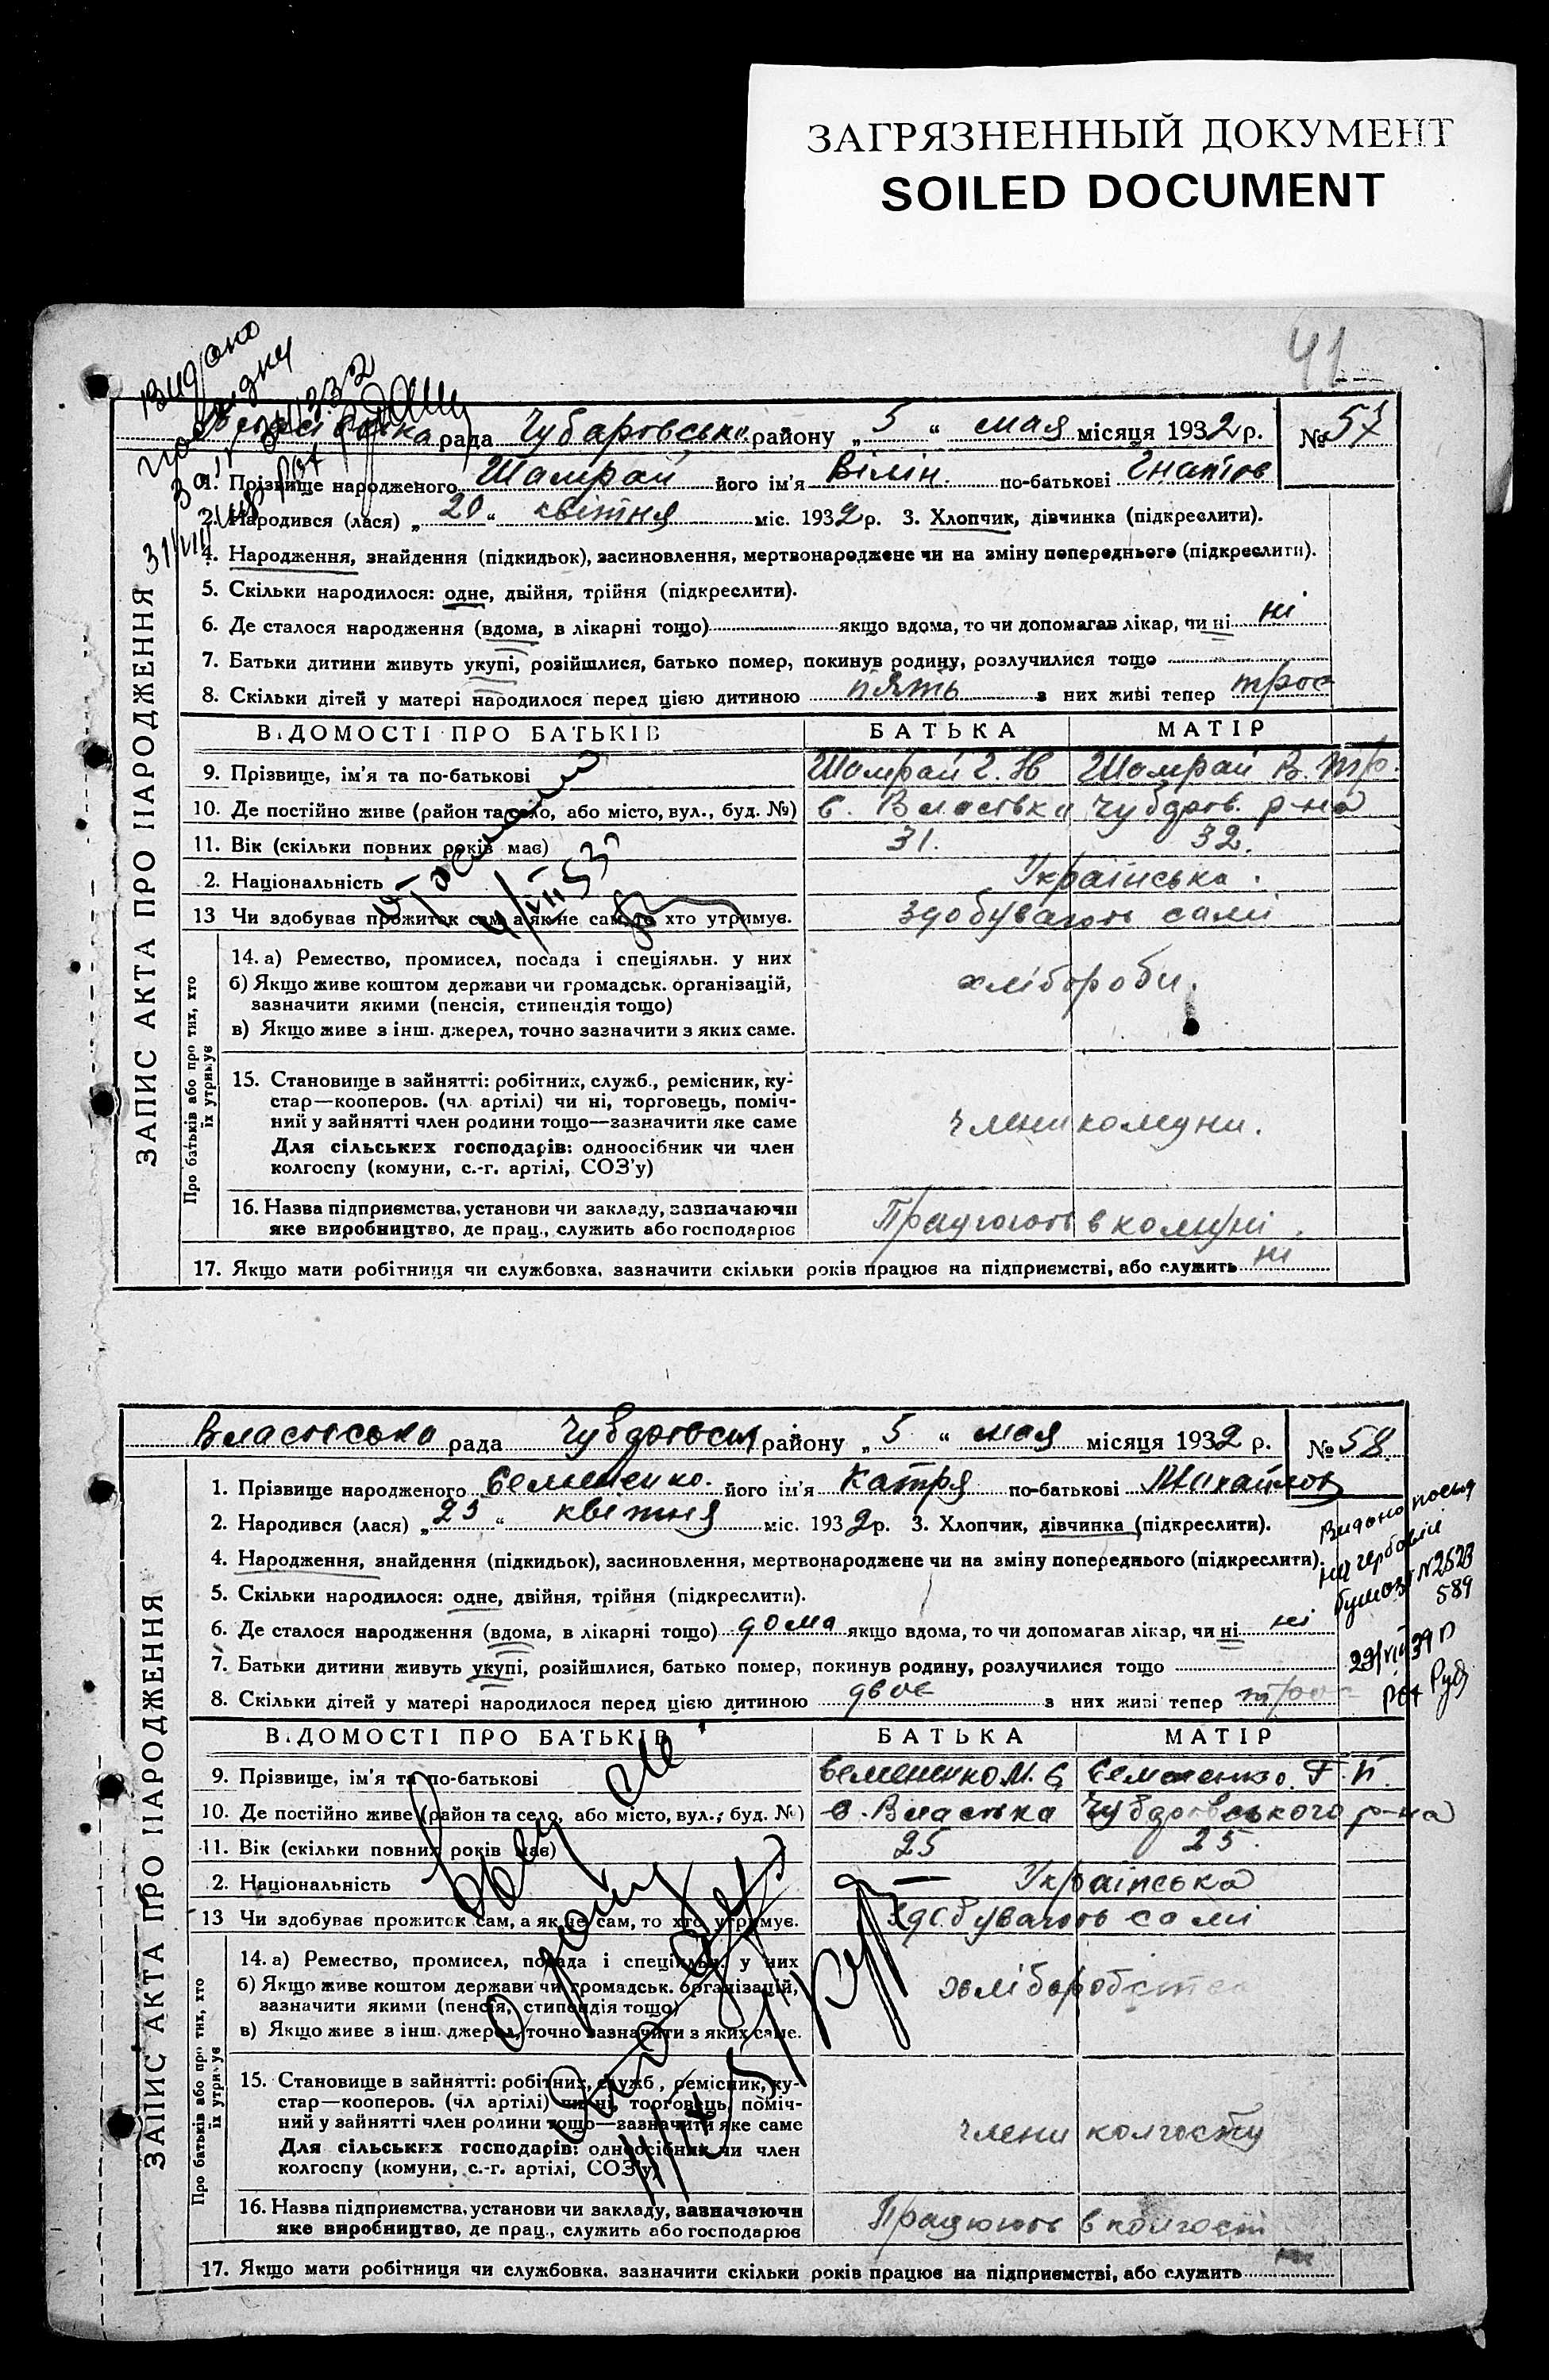 ЗАГРЯЗНЕННЫЙ ДОКУМЕНТ
SOILED DOCUMENT
41
Видано
рада Чубаровсько району „ 5 “ мая місяця 1932 р. № 57
1. Прізвище народженого Шамрай його ім'я Вілін. по-батькові Гнатов
2. Народився (лася) „ 20 “ квітня міс. 1932 р. 3. Хлопчик, дівчинка (підкреслити).
4. Народження, знайдення (підкидьок), засиновлення, мертвонароджене чи на зміну попереднього (підкреслити).
5. Скільки народилося: одне, двійня, трійня (підкреслити).
6. Де сталося народження (вдома, в лікарні тощо) якщо вдома, то чи допомагав лікар, чи ні ні
7. Батьки дитини живуть укупі, розійшлися, батько помер, покинув родину, розлучилися тощо
8. Скільки дітей у матері народилося перед цією дитиною пять з них живі тепер троє
ЗАПИС АКТА ПРО НАРОДЖЕННЯ
ВІДОМОСТІ ПРО БАТЬКІВ БАТЬКА МАТІР
9. Прізвище, ім'я та по-батькові Шамрай Г. Шамрай В. Тр.
10. Де постійно живе (район та село, або місто, вул., буд. №) с. Власівка Чубаров. р-на
11. Вік (скільки повних років має) 31. 32.
2. Національність Українська.
13 Чи здобуває прожиток сам, а як не сам, то хто утримує. здобувають самі
Про батьків або про тих, хто їх утримує
14. а) Ремество, промисел, посада і спеціяльн. у них хлібороби.
б) Якщо живе коштом держави чи громадськ. організацій,
зазначити якими (пенсія, стипендія тощо)
в) Якщо живе з інш. джерел, точно зазначити з яких саме.
15. Становище в зайнятті: робітних, служб., ремісник, ку-
стар—кооперов. (чл. артілі) чи ні, торговець, поміч-
ний у зайнятті член родини тощо—зазначити яке саме члени комуни.
Для сільських господарів: одноосібник чи член
колгоспу (комуни, с.-г. артілі, СОЗ'у)
16. Назва підприємства, установи чи закладу, зазначаючи Працюють в комуні.
яке виробництво, де прац., служить або господарює
17. Якщо мати робітниця чи службовка, зазначити скільки років працює на підприємстві, або служить ні
Власівсько рада району „ 5 “ мая місяця 1932 р. № 58
1. Прізвище народженого Семененко. його ім'я Катря по-батькові Михайлов
2. Народився (лася) „ 25 “ квітня міс. 1932 р. 3. Хлопчик, дівчинка (підкреслити).
4. Народження, знайдення (підкидьок), засиновлення, мертвонароджене чи на зміну попереднього (підкреслити).
5. Скільки народилося: одне, двійня, трійня (підкреслити).
6. Де сталося народження (вдома, в лікарні тощо) дома якщо вдома, то чи допомагав лікар, чи ні ні
7. Батьки дитини живуть укупі, розійшлися, батько помер, покинув родину, розлучилися тощо
8. Скільки дітей у матері народилося перед цією дитиною двоє з них живі тепер троє
Видано
на гербовій
N 2523
589
ЗАПИС АКТА ПРО НАРОДЖЕННЯ
ВІДОМОСТІ ПРО БАТЬКІВ БАТЬКА МАТІР
9. Прізвище, ім'я та по-батькові Семененко М. Є Семененко. Г. П.
10. Де постійно живе (район та село, або місто, вул., буд. №) с. Власівка Чубарівського р-на
11. Вік (скільки повних років має) 25 25
2. Національність Українська
13 Чи здобуває прожиток сам, а як не сам, то хто утримує. здобувають самі
Про батьків або про тих, хто їх утримує
14. а) Ремество, промисел, посада і спеціяльн. у них хліборобство
б) Якщо живе коштом держави чи громадськ. організацій,
зазначити якими (пенсія, стипендія тощо)
в) Якщо живе з інш. джерел, точно зазначити з яких саме.
15. Становище в зайнятті: робітних, служб., ремісник, ку-
стар—кооперов. (чл артілі) чи ні, торговець, поміч-
ний у зайнятті член родини тощо—зазначити яке саме члени колгоспу
Для сільських господарів: одноосібник чи член
колгоспу (комуни, с.-г. артілі, СОЗ'у)
16. Назва підприємства, установи чи закладу, зазначаючи Працюють в колгоспі
яке виробництво, де прац., служить або господарює
17. Якщо мати робітниця чи службовка, зазначити скільки років працює на підприємстві, або служить